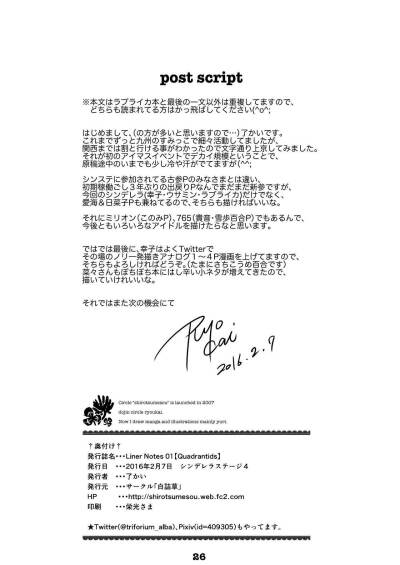 post script
※本文はラブライカ本と最後の一文以外は重複してますので、
どちらも読まれてる方はかっ飛ばしてください(^o^;
はじめまして、(の方が多いと思いますので…)了かいです。
これまでずっと九州のすみっこで細々活動してましたが、
関西までは割と行ける事がわかったので文字通り上京してみました。
それが初のアイマスイベントでデカイ規模ということで、
原稿途中のいまでも少し冷や汗がでてますが(^^;
シンステに参加されてる古参Pのみなさまとは違い、
初期稼働ごし3年ぶりの出戻りPなんでまだまだ新参ですが、
今回のシンデレラ(幸子・ウサミン・ラブライカ)だけでなく、
愛海&日菜子Pも兼ねてるので、そちらも描ければいいな。
それにミリオン(このみP)、765(貴音・雪歩百合P)でもあるんで、
今後ともいろいろなアイドルを描けたらなと思います。
ではでは最後に、幸子はよくTwitterで
その場のノリ一発描きアナログ1～4P漫画を上げてますので、
そちらもよろしければどうぞ。(たまにさちこうめ百合です)
菜々さんもぼちぼち本にはし辛い小ネタが増えてきたので、
描いていけれいいな。
それではまた次の機会にて
Ryo Kai
2016.2.7
Circle "shirotsumesou" is launched in 2007
dojin circle ryoukai.
Now I draw manga and illustrations mainly yuri.
↑奥付け↑
発行誌名・・・Liner Notes 01【Quadrantids】
発行日 ・・・2016年2月7日 シンデレラステージ4
発行者 ・・・了かい
発行元 ・・・サークル「白詰草」
HP ・・・http://shirotsumesou.web.fc2.com
印刷 ・・・栄光さま
★Twitter(@triforium_alba)、Pixiv(id=409305)もやってます。
26